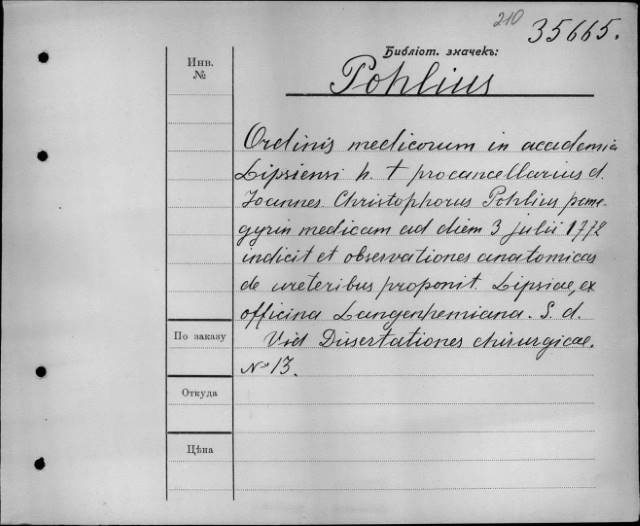 210
35665.
Библіот. значекъ:
Инв. №
Pohlius
Ordinis medicorum in academia
Lipsiensi h. t procancellarius d.
Joannes Christophorus Pohlius pane-
gyrin medicam ad diem 3 julii 1772
indicit et observationes anatomicas
de ureteribus proponit. Lipsiae, ex
officina Langenhemiana. S. d.
По заказу
Vid Dissertationes chirurgicae.
№ 13.
Откуда
Цѣна